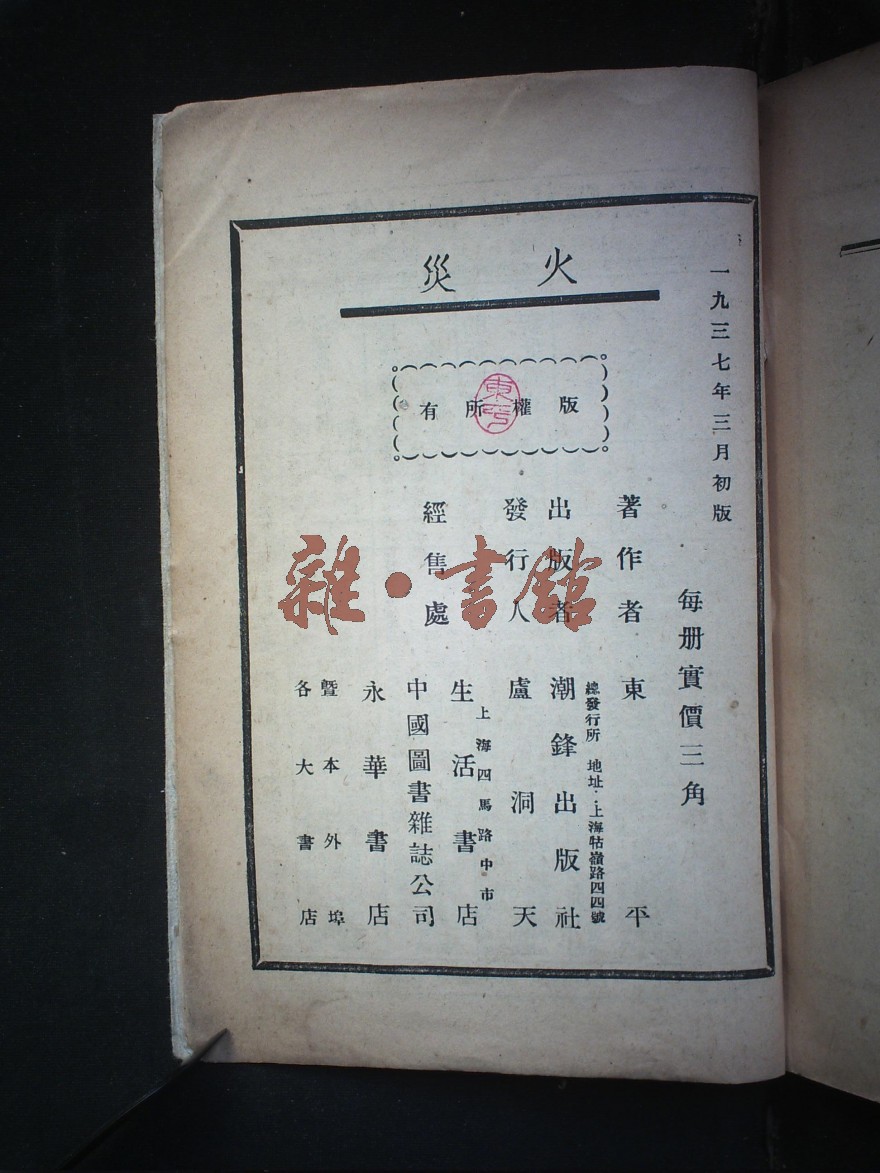 一九三七年三月初版
火災
版權所有
東平
每册實價三角
著作者 東平
總發行所 地址·上海牯嶺路四四號
出版者 潮鋒出版社
發行人 盧洞天
上海四馬路中市
經售處 生活書店
中國圖書雜誌公司
永華書店
暨本外埠
各大書店
雜·書館